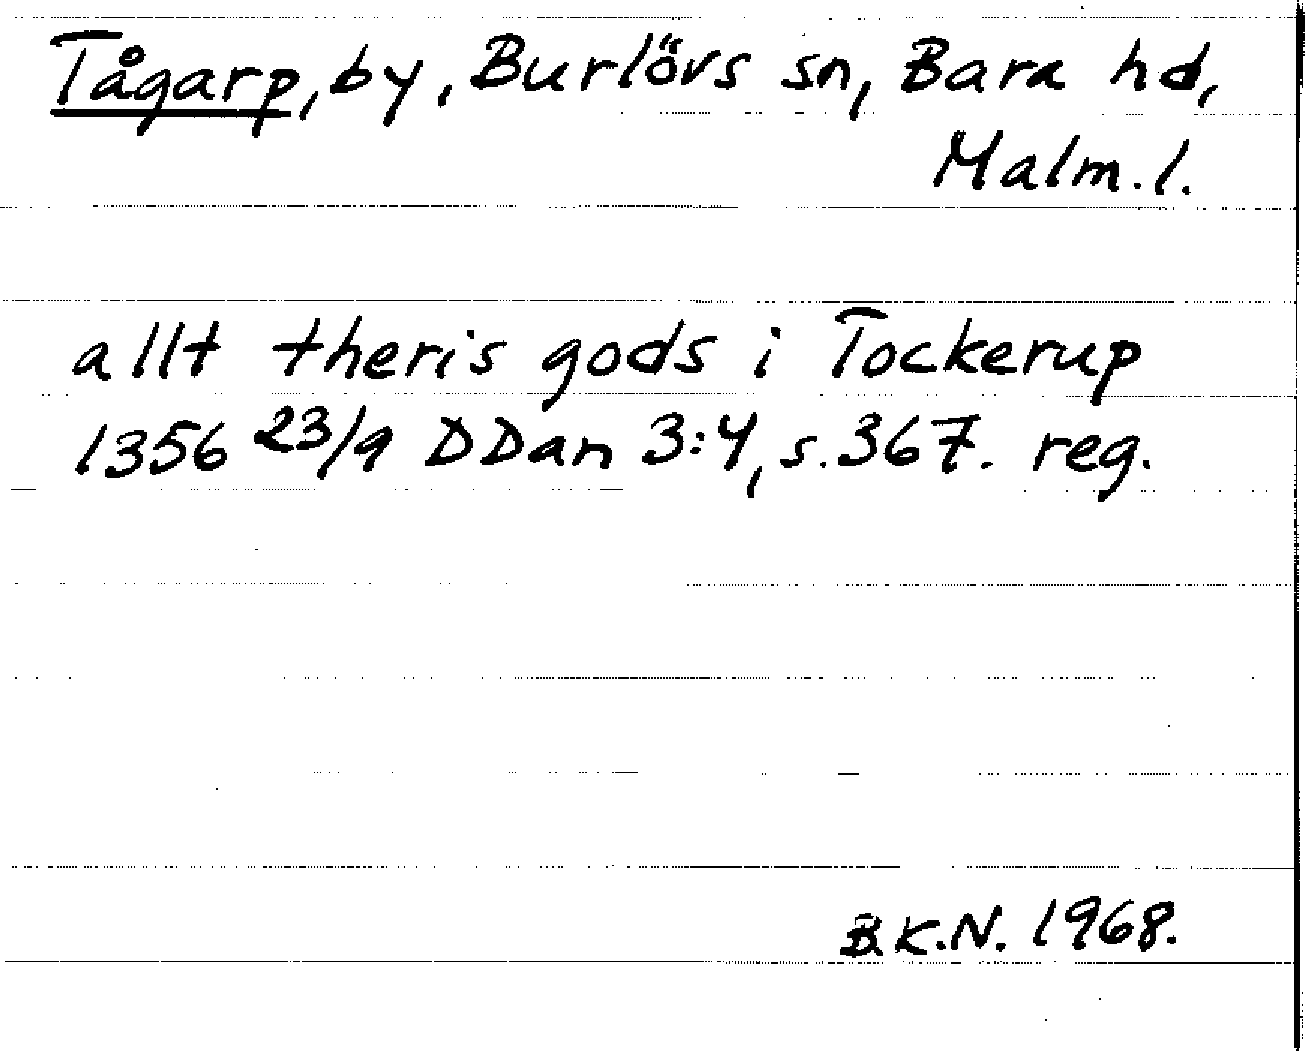 Tågarp, by, Burlövs sn, Bara hd,
Malm.l.
allt theris gods i Tockerup
1356 23/9 DDan 3:4, s. 367. reg.
B.K.N. 1968.